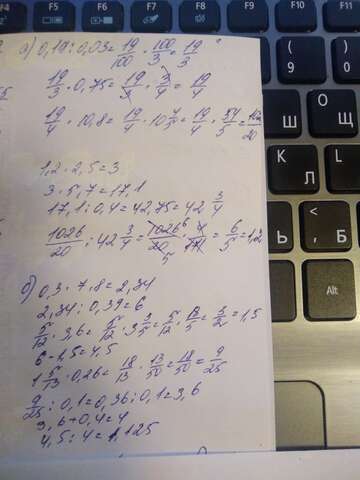 F4 F5 F6 F7 F8
а) 0,19 : 0,03 = 19/100 · 100/3 = 19/3
19/3 · 0,75 = 19/3 · 3/4 = 19/4
19/4 · 10,8 = 19/4 · 10 4/5 = 19/4 · 54/5 = 1026/20
1,2 · 2,5 = 3
3 · 5,7 = 17,1
17,1 : 0,4 = 42,75 = 42 3/4
1026/20 : 42 3/4 = 1026/20 · 4/171 = 6/5 = 1,2
б) 0,3 · 7,8 = 2,34
2,34 : 0,39 = 6
5/12 · 3,6 = 5/12 · 3 3/5 = 5/12 · 18/5 = 3/2 = 1,5
6 - 1,5 = 4,5
1 5/13 · 0,26 = 18/13 · 13/50 = 18/50 = 9/25
9/25 : 0,1 = 0,36 : 0,1 = 3,6
3,6 + 0,4 = 4
4,5 : 4 = 1,125
( 9
) 0
Ш
Щ O
Л
L
Alt